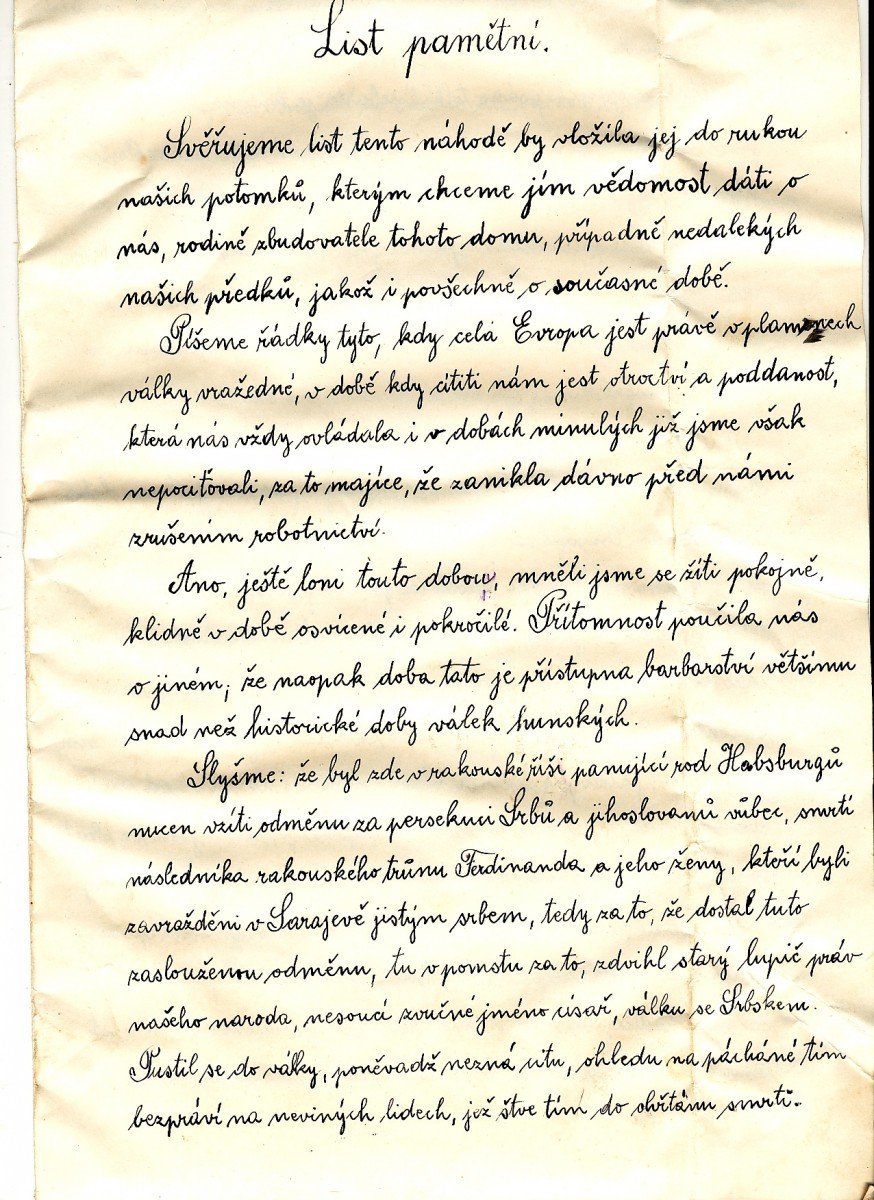 List pamětní.
Svěřujeme list tento náhodě by vložila jej do rukou
našich potomků, kterým chceme jím vědomost dáti o
nás, rodině zbudovatele tohoto domu, případně nedalekých
našich předků, jakož i povšechně o současné době.
Píšeme řádky tyto, kdy celá Evropa jest právě v plamenech
války vražedné, v době kdy cítiti nám jest otroctví a poddanost,
která nás vždy ovládala i v dobách minulých již jsme však
nepociťovali, za to majíce, že zanikla dávno před námi
zrušením robotnictví.
Ano, ještě loni touto dobou, mněli jsme se žíti pokojně,
klidně v době osvícené i pokročilé. Přítomnost poučila nás
o jiném; že naopak doba tato je přístupna barbarství většímu
snad než historické doby válek hunských.
Slyšme: že byl zde v rakouské říši panující rod Habsburgů
nucen vzíti odměnu za persekuci Srbů a jihoslovanů vůbec, smrtí
následníka rakouského trůnu Ferdinanda a jeho ženy, kteří byli
zavražděni v Sarajevě jistým srbem, tedy za to, že dostal tuto
zaslouženou odměnu, tu v pomstu za to, zdvihl starý lupič práv
našeho naroda, nesoucí zvučné jméno císař, válku se Srbskem.
Pustil se do války, poněvadž nezná citu, ohledu na páchané tím
bezpráví na neviných lidech, jež štve tím do chřtánu smrti.